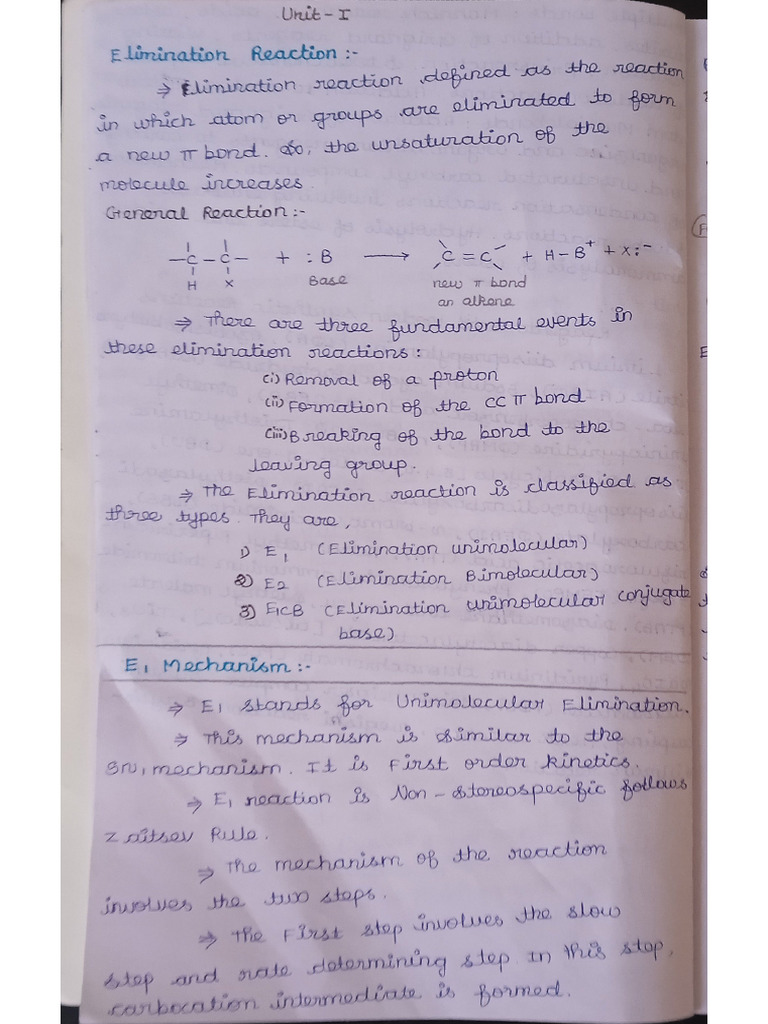 Unit-I
Elimination Reaction :-
⇒ Elimination reaction defined as the reaction
in which atom or groups are eliminated to form
a new π bond. So, the unsaturation of the
molecule increases.
General Reaction :-
-C-C- + :B → C=C + H-B⁺ + X:⁻
H X Base new π bond
an alkene
⇒ There are three fundamental events in
these elimination reactions :
(i) Removal of a proton
(ii) Formation of the CC π bond
(iii) Breaking of the bond to the
leaving group.
⇒ The Elimination reaction is classified as
three types. They are,
1) E1 (Elimination unimolecular)
2) E2 (Elimination Bimolecular)
3) E1CB (Elimination unimolecular conjugate
base)
E1 Mechanism :-
⇒ E1 stands for Unimolecular Elimination.
⇒ This mechanism is similar to the
SN1 mechanism. It is First order kinetics.
⇒ E1 reaction is Non-stereospecific follows
Zaitsev Rule.
⇒ The mechanism of the reaction
involves the two steps.
⇒ The First step involves the slow
step and rate determining step In this step,
carbocation intermediate is formed.